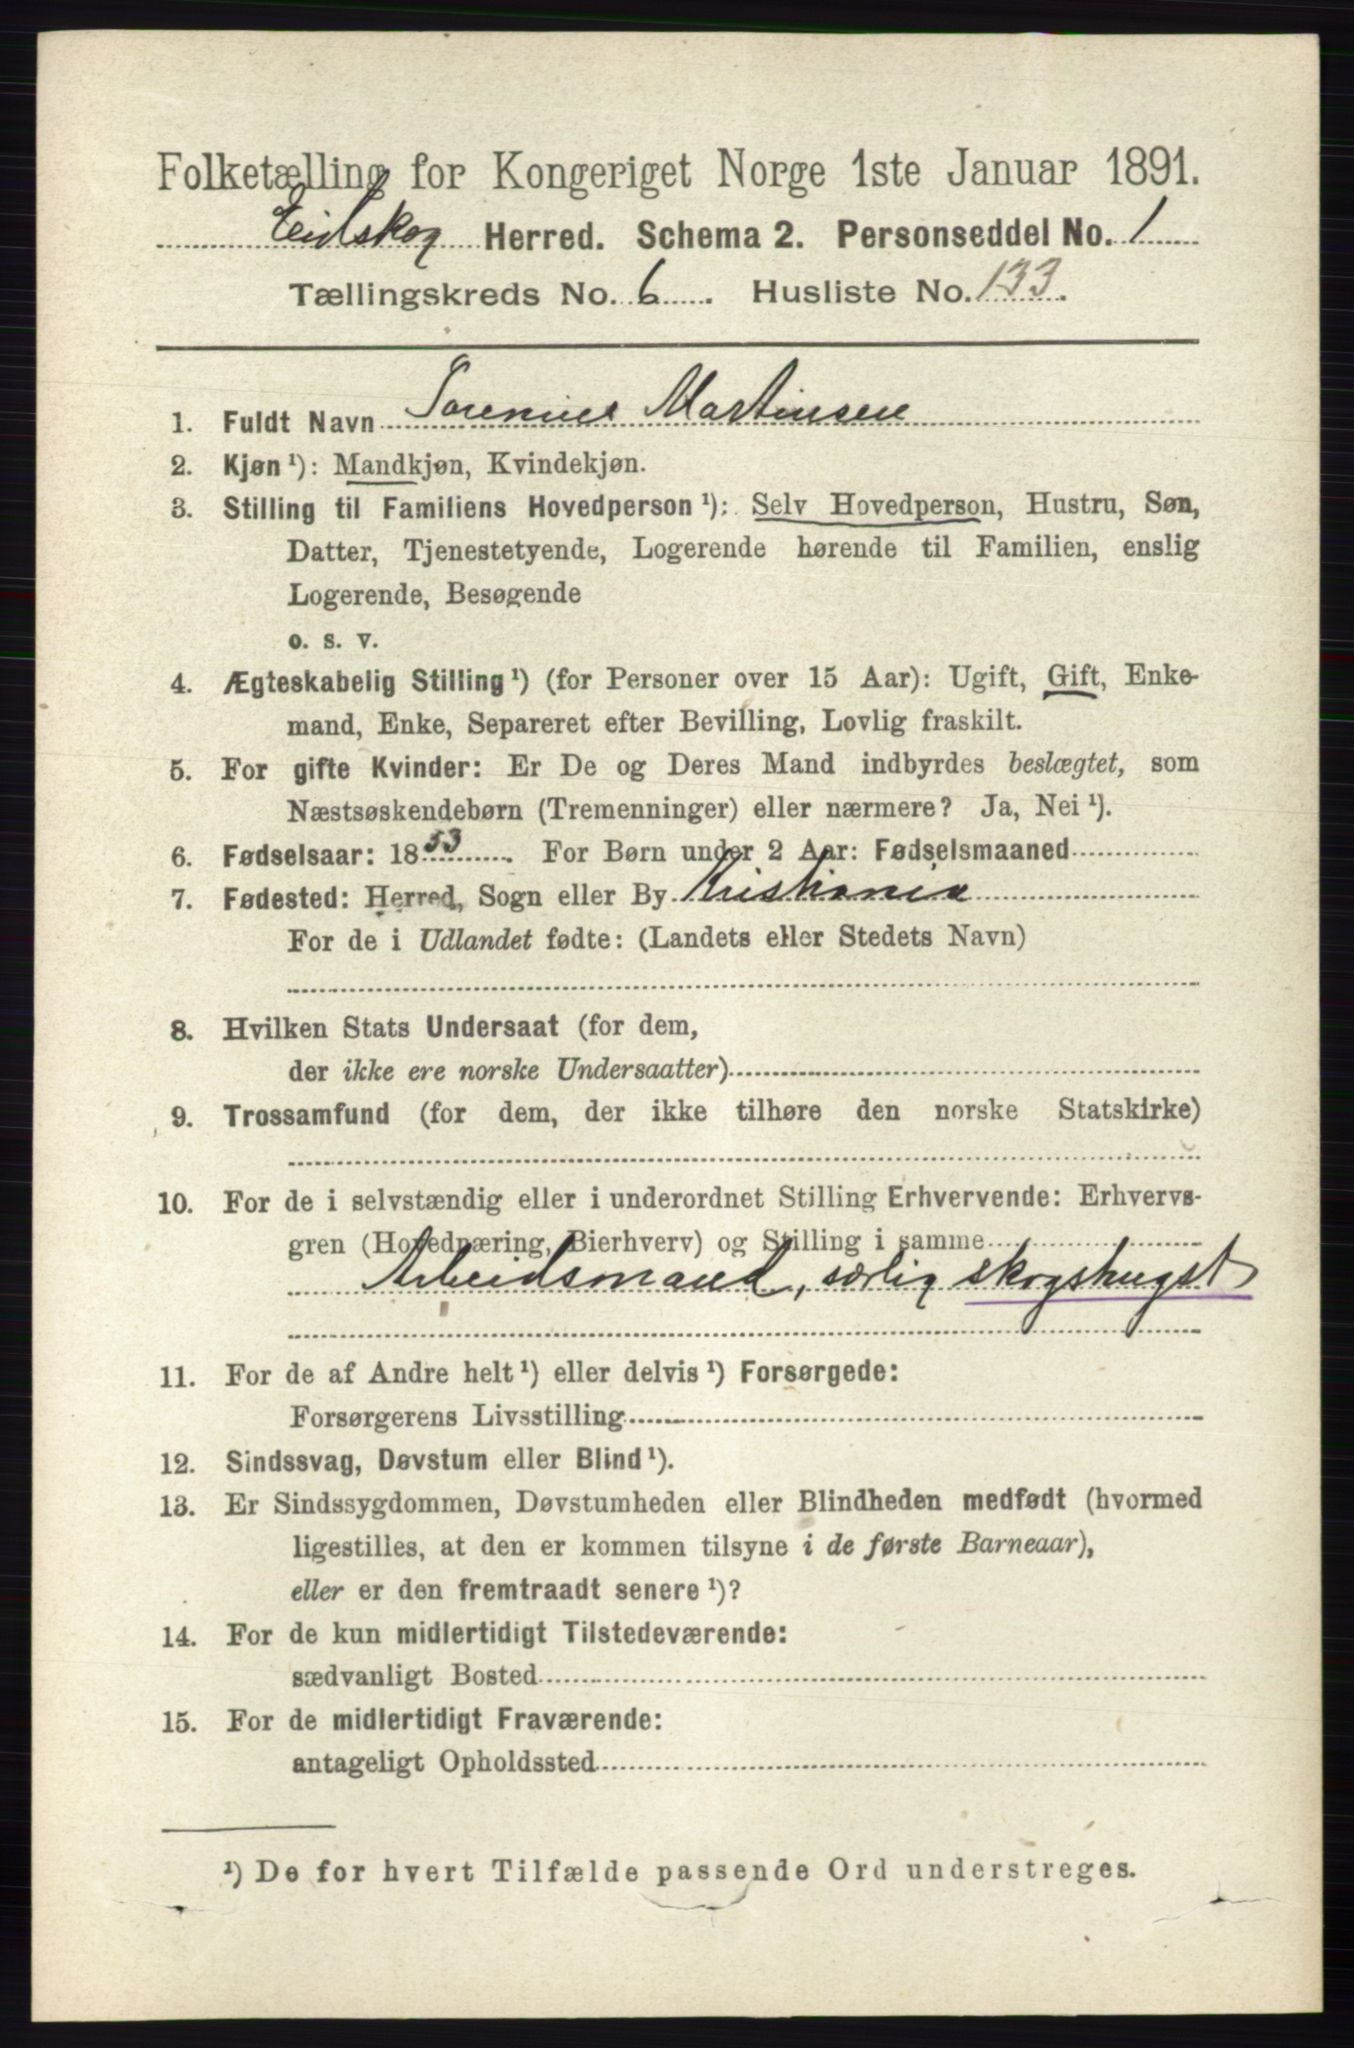 Folketælling for Kongeriget Norge 1ste Januar 1891.
Eidskog Herred. Schema 2. Personseddel No. 1
Tællingskreds No. 6. Husliste No. 133.
1. Fuldt Navn Sorenius Martinsen
2. Kjøn¹): Mandkjøn, Kvindekjøn.
3. Stilling til Familiens Hovedperson¹): Selv Hovedperson, Hustru, Søn,
Datter, Tjenestetyende, Logerende hørende til Familien, enslig
Logerende, Besøgende
o. s. v.
4. Ægteskabelig Stilling¹) (for Personer over 15 Aar): Ugift, Gift, Enke-
mand, Enke, Separeret efter Bevilling, Lovlig fraskilt.
5. For gifte Kvinder: Er De og Deres Mand indbyrdes beslægtet, som
Næstsøskendebørn (Tremenninger) eller nærmere? Ja, Nei¹).
6. Fødselsaar: 1853. For Børn under 2 Aar: Fødselsmaaned
7. Fødested: Herred, Sogn eller By Kristiania
For de i Udlandet fødte: (Landets eller Stedets Navn)
8. Hvilken Stats Undersaat (for dem,
der ikke ere norske Undersaatter)
9. Trossamfund (for dem, der ikke tilhøre den norske Statskirke)
10. For de i selvstændig eller i underordnet Stilling Erhvervende: Erhvervs-
gren (Hovednæring, Bierhverv) og Stilling i samme
Arbeidsmand, særlig skogshugst
11. For de af Andre helt¹) eller delvis¹) Forsørgede:
Forsørgerens Livsstilling
12. Sindssvag, Døvstum eller Blind¹).
13. Er Sindssygdommen, Døvstumheden eller Blindheden medfødt (hvormed
ligestilles, at den er kommen tilsyne i de første Barneaar),
eller er den fremtraadt senere¹)?
14. For de kun midlertidigt Tilstedeværende:
sædvanligt Bosted
15. For de midlertidigt Fraværende:
antageligt Opholdssted
¹) De for hvert Tilfælde passende Ord understreges.